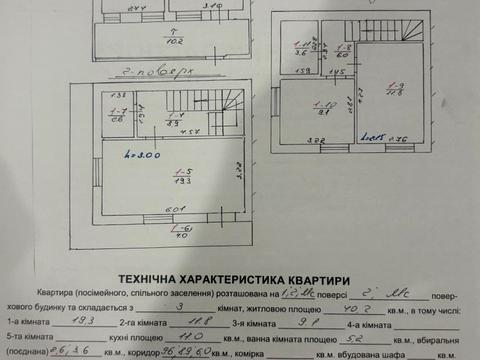 2.77
3.10
T
10.2
2-поверх
1-11
3.6
2.28
1-8
6.0
1.59
1.45
1-9
11.8
4.27
1-10
9.1
2.81
3.22
h=2.15
2.76
1.38
1-7
2.6
1.94
1-1
8.9
4.57
h=3.00
1-5
19.3
3.22
6.01
1-6
4.0
ТЕХНІЧНА ХАРАКТЕРИСТИКА КВАРТИРИ
Квартира (посімейного, спільного заселення) розташована на 1,2, Мс поверсі 2, Мс повер-
хового будинку та складається з 3 кімнат, житловою площею 40,2 кв.м., в тому числі:
1-а кімната 19,3 2-га кімната 11.8 3-я кімната 9,1 4-а кімната
5-та кімната кухні площею 11.0 кв.м., ванна кімната 5,2 кв.м., вбиральня
(поєднана) 2,6, 3.6 кв.м., коридор 9,6 8,9 6,0 кв.м., комірка кв.м., вбудована шафа кв.м.